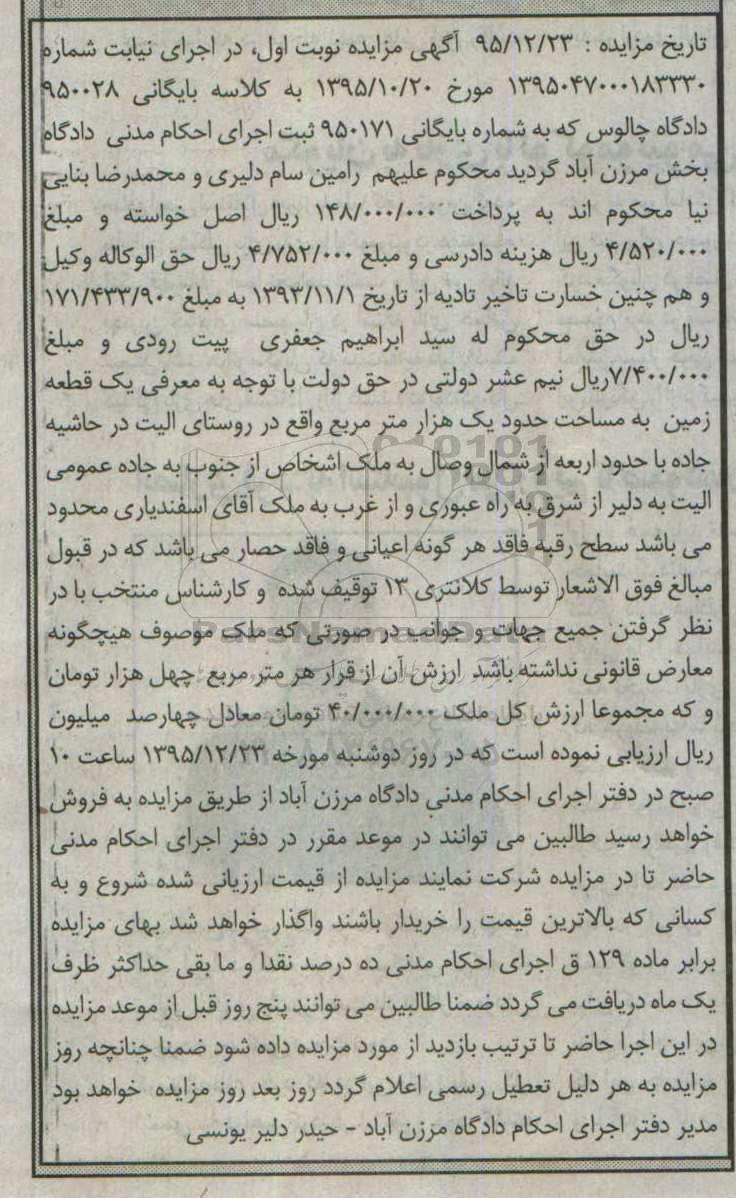 تاریخ مزایده : ۹۵/۱۲/۲۳ آگهی مزایده نوبت اول، در اجرای نیابت شماره
۱۳۹۵۰۴۷۰۰۰۱۸۳۳۳۰ مورخ ۱۳۹۵/۱۰/۲۰ به کلاسه بایگانی ۹۵۰۰۲۸
دادگاه چالوس که به شماره بایگانی ۹۵۰۱۷۱ ثبت اجرای احکام مدنی دادگاه
بخش مرزن آباد گردید محکوم علیهم رامین سام دلیری و محمدرضا بنایی
نیا محکوم اند به پرداخت ۱۴۸/۰۰۰/۰۰۰ ریال اصل خواسته و مبلغ
۴/۵۲۰/۰۰۰ ریال هزینه دادرسی و مبلغ ۴/۷۵۲/۰۰۰ ریال حق الوکاله وکیل
و هم چنین خسارت تاخیر تادیه از تاریخ ۱۳۹۳/۱۱/۱ به مبلغ ۱۷۱/۴۳۳/۹۰۰
ریال در حق محکوم له سید ابراهیم جعفری پیت رودی و مبلغ
۷/۴۰۰/۰۰۰ریال نیم عشر دولتی در حق دولت با توجه به معرفی یک قطعه
زمین به مساحت حدود یک هزار متر مربع واقع در روستای الیت در حاشیه
جاده با حدود اربعه از شمال وصال به ملک اشخاص از جنوب به جاده عمومی
الیت به دلیر از شرق به راه عبوری و از غرب به ملک آقای اسفندیاری محدود
می باشد سطح رقبه فاقد هر گونه اعیانی و فاقد حصار می باشد که در قبول
مبالغ فوق الاشعار توسط کلانتری ۱۳ توقیف شده و کارشناس منتخب با در
نظر گرفتن جمیع جهات و جوانب در صورتی که ملک موصوف هیچگونه
معارض قانونی نداشته باشد ارزش آن از قرار هر متر مربع چهل هزار تومان
و که مجموعا ارزش کل ملک ۴۰/۰۰۰/۰۰۰ تومان معادل چهارصد میلیون
ریال ارزیابی نموده است که در روز دوشنبه مورخه ۱۳۹۵/۱۲/۲۳ ساعت ۱۰
صبح در دفتر اجرای احکام مدنی دادگاه مرزن آباد از طریق مزایده به فروش
خواهد رسید طالبین می توانند در موعد مقرر در دفتر اجرای احکام مدنی
حاضر تا در مزایده شرکت نمایند مزایده از قیمت ارزیانی شده شروع و به
کسانی که بالاترین قیمت را خریدار باشند واگذار خواهد شد بهای مزایده
برابر ماده ۱۲۹ ق اجرای احکام مدنی ده درصد نقدا و ما بقی حداکثر ظرف
یک ماه دریافت می گردد ضمنا طالبین می توانند پنج روز قبل از موعد مزایده
در این اجرا حاضر تا ترتیب بازدید از مورد مزایده داده شود ضمنا چنانچه روز
مزایده به هر دلیل تعطیل رسمی اعلام گردد روز بعد روز مزایده خواهد بود
مدیر دفتر اجرای احکام دادگاه مرزن آباد - حیدر دلیر یونسی